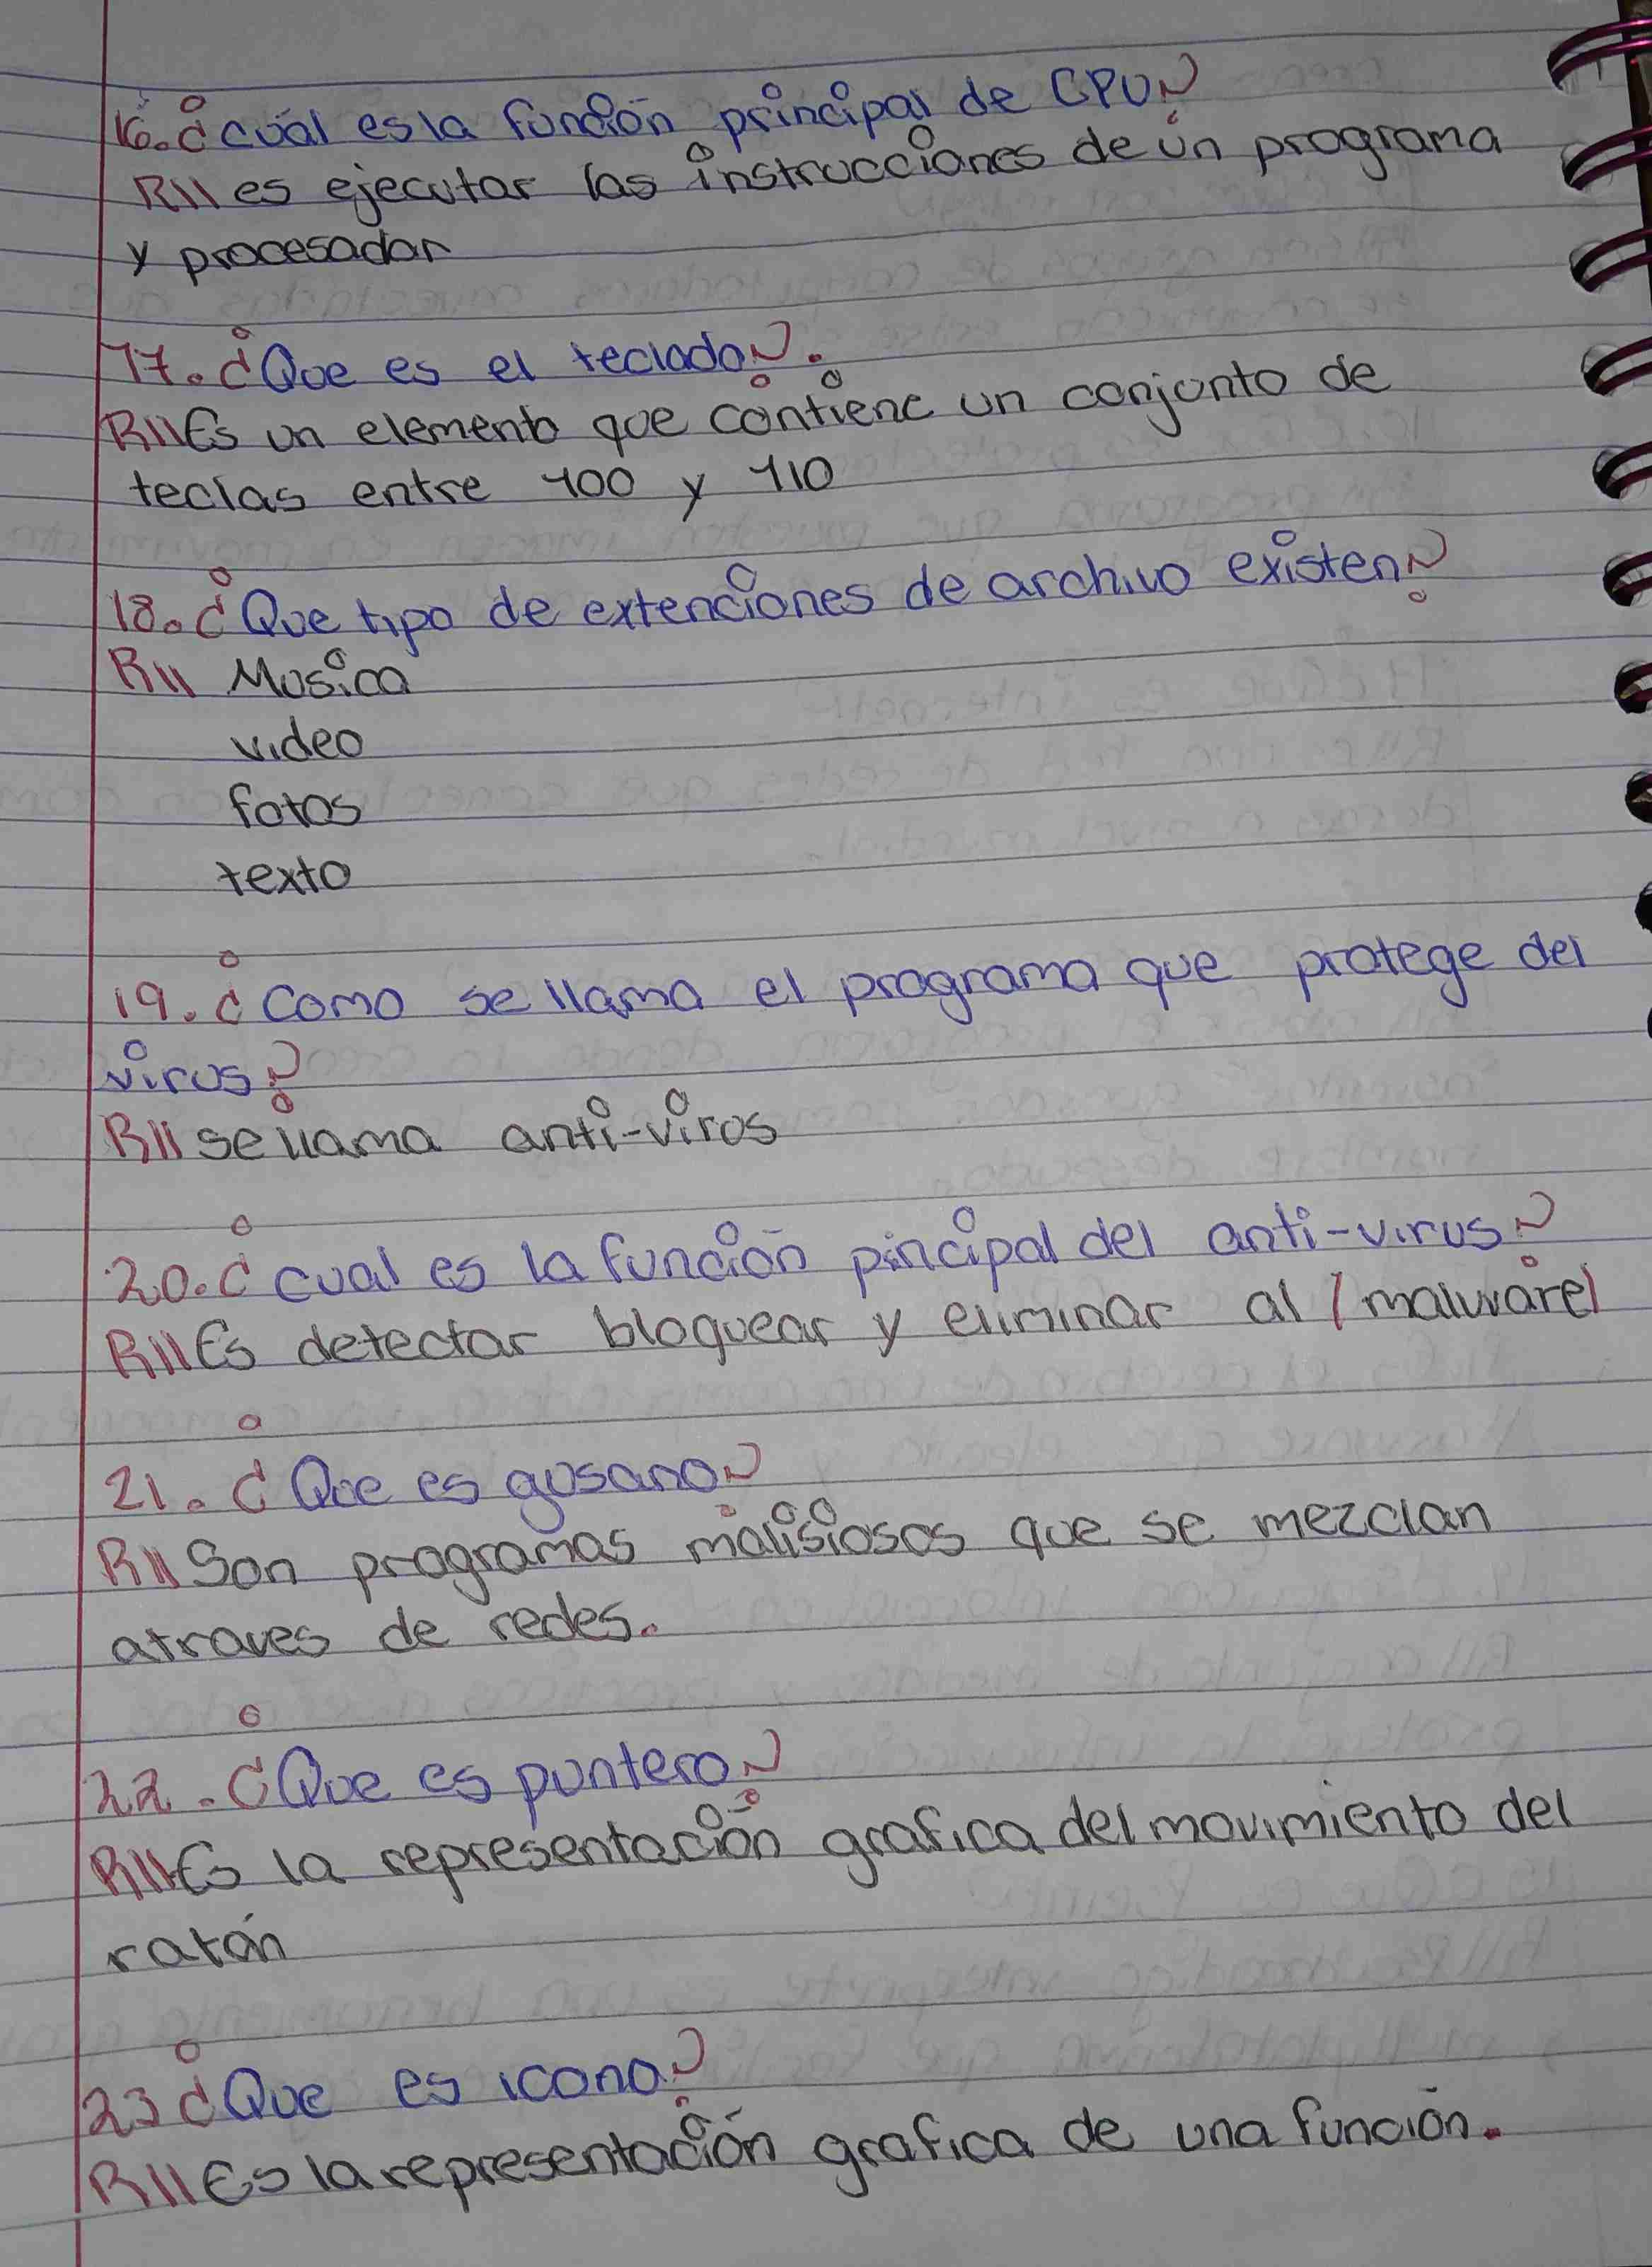 16. ¿cual es la función principal de CPU?
R// es ejecutar las instrucciones de un programa
y procesador
17. ¿Que es el teclado?.
R// Es un elemento que contiene un conjunto de
teclas entre 100 y 110
18. ¿Que tipo de extenciones de archivo existen?
R// Musica
video
fotos
texto
19. ¿Como se llama el programa que protege del
virus?
R// se llama anti-virus
20. ¿cual es la función pincipal del anti-virus?
R// Es detectar bloquear y eliminar al /malware/
21. ¿Que es gusano?
R// Son programas malisiosos que se mezclan
atraves de redes.
22. ¿Que es puntero?
R// Es la representación grafica del movimiento del
ratón
23 ¿Que es icono?
R// Es la representación grafica de una función.